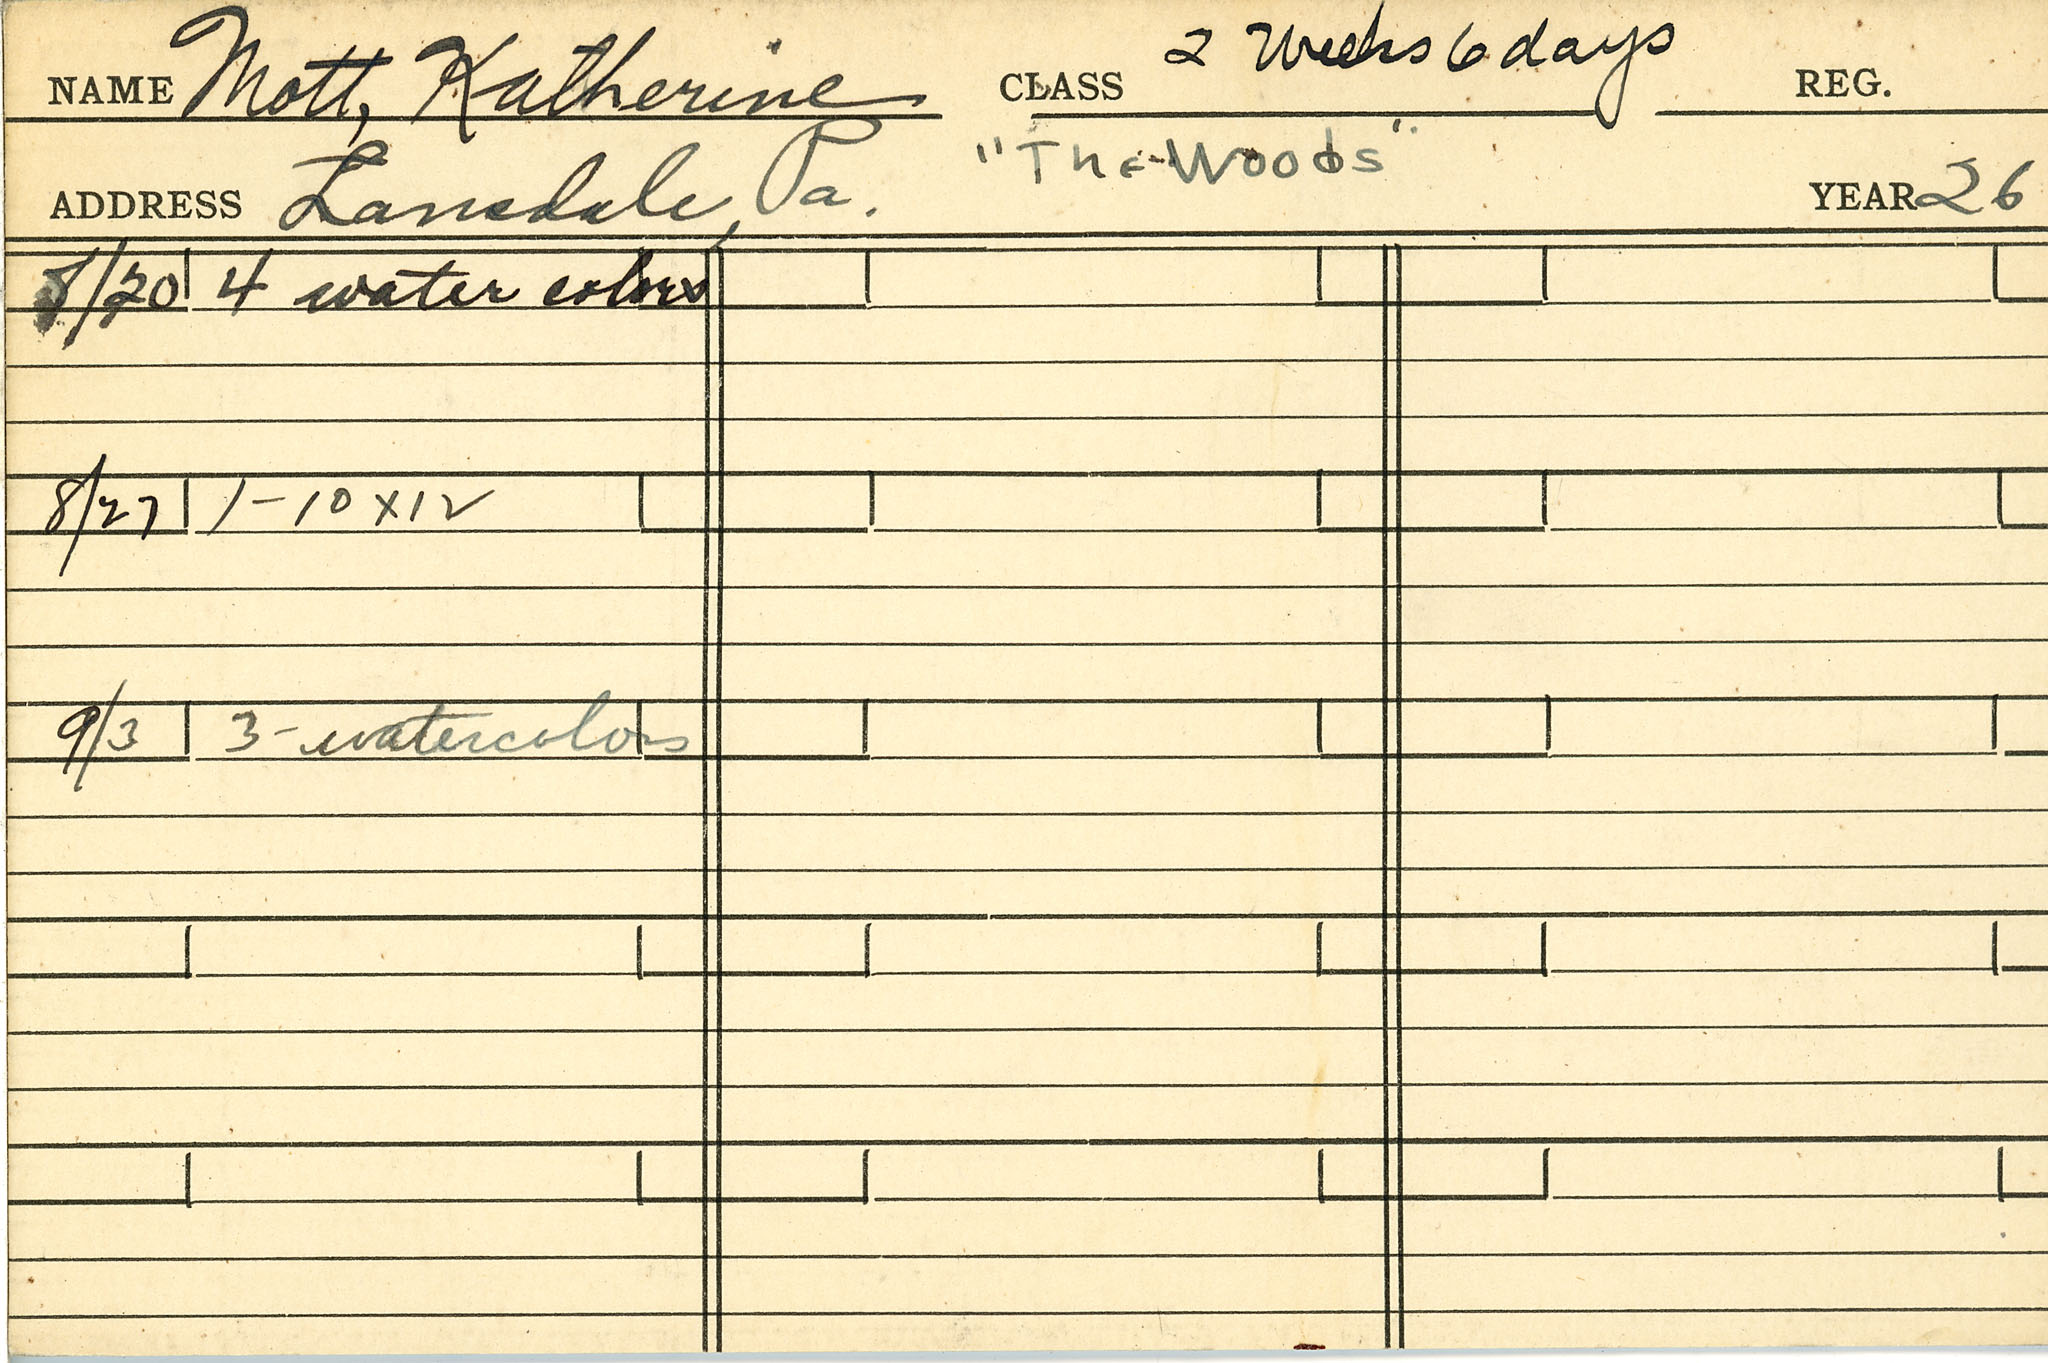 NAME Mott, Katherine CLASS 2 Weeks 6 days REG.
ADDRESS Lansdale, Pa. "The Woods" YEAR 26
8/20 4 water colors
8/27 1-10 x 12
9/3 3-watercolors